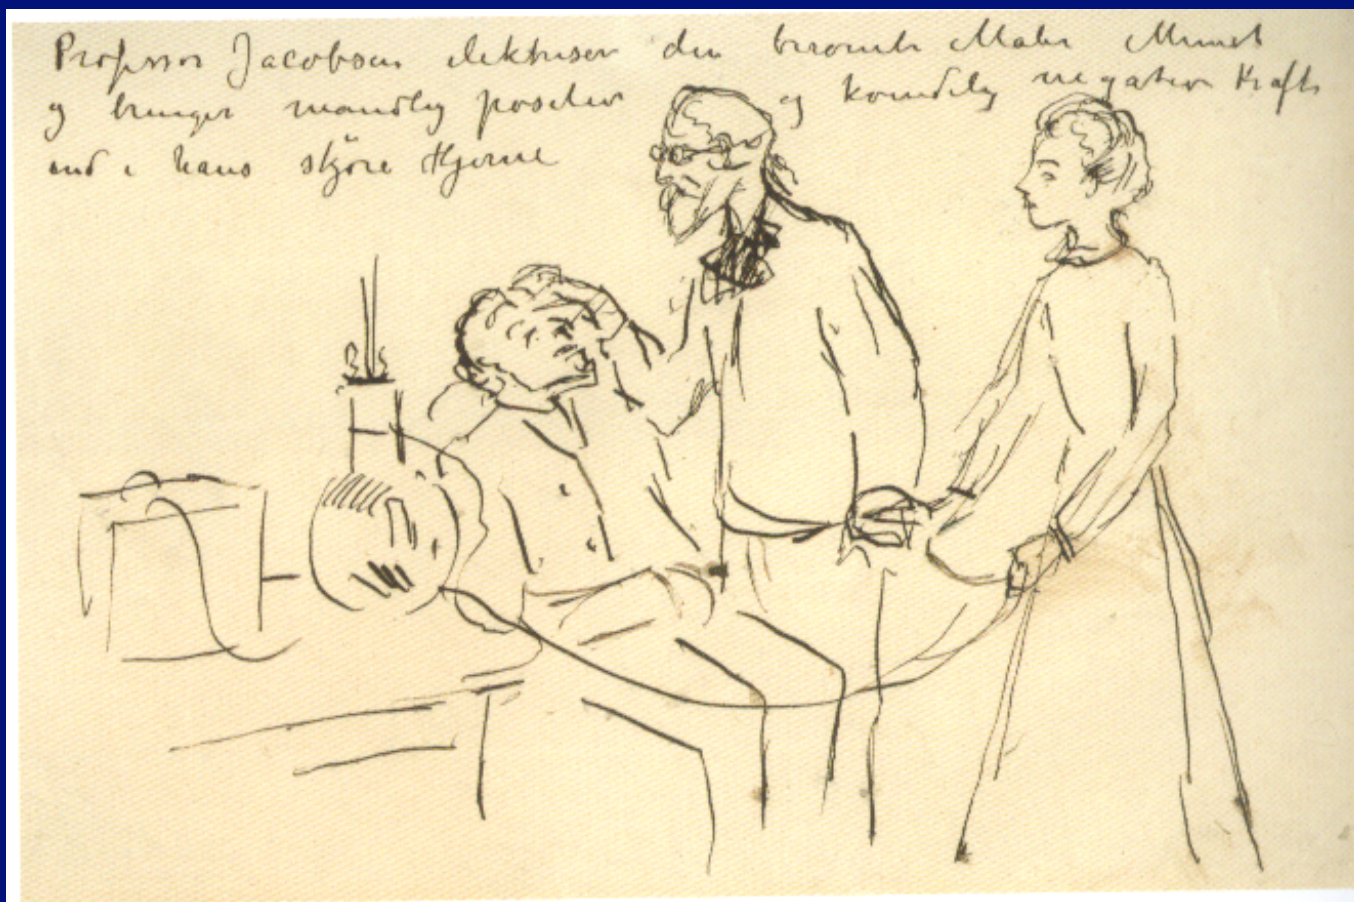 Professor Jacobson elektriser den berömte Maler Munch
og bringer mandlig positiv og kvindelig negativ Kraft
ind i hans skjöre Hjerne